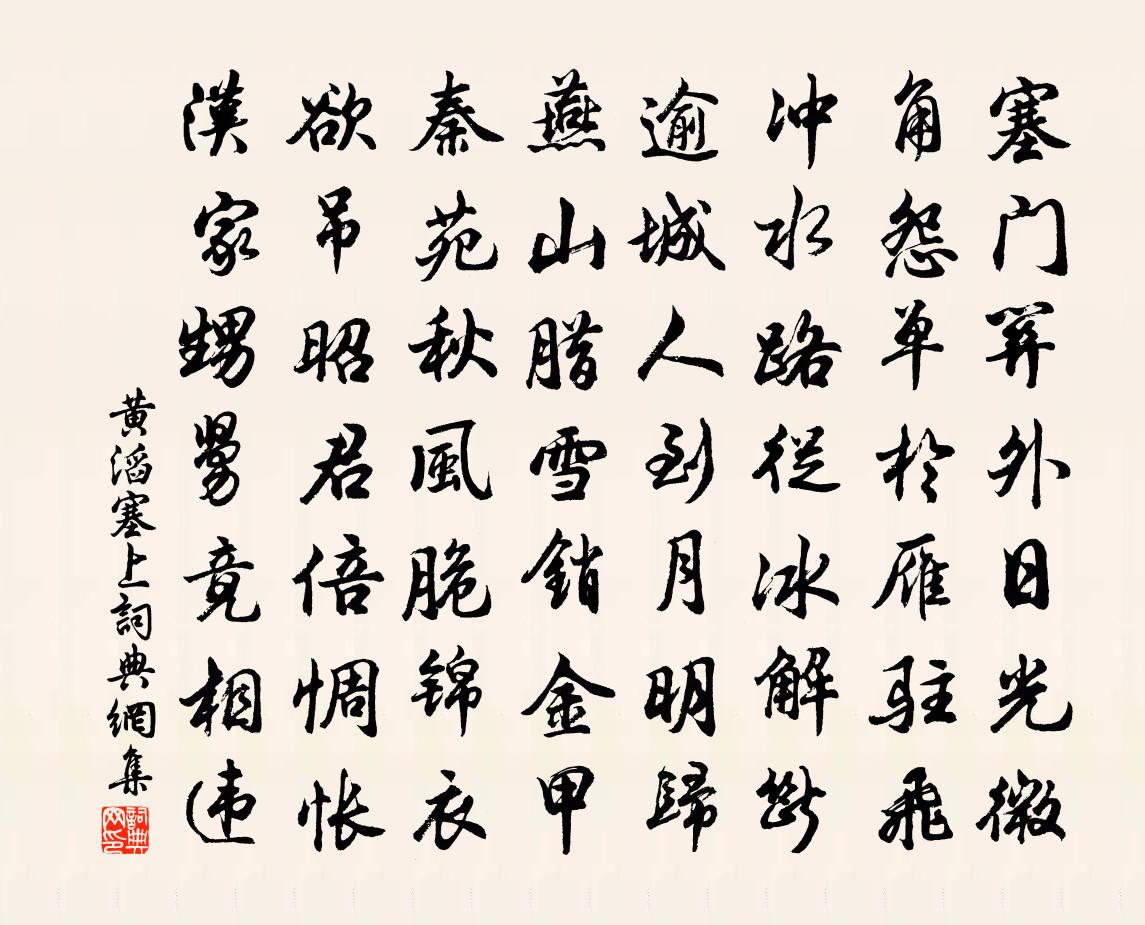 塞门羿外日光微
角怨单於雁驻飛
冲水路從冰解斷
逾城人到月明歸
燕山腊雪銷金甲
秦苑秋風脆锦衣
欲吊昭君倍惆怅
漢家甥舅竟相违
黄滔塞上詞典網集
詞典网印